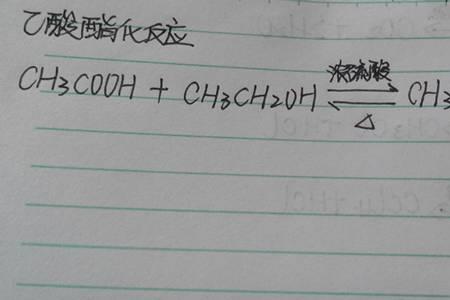 乙酸酯化反应
CH3COOH + CH3CH2OH 浓硫酸 ⇌ △ CH3